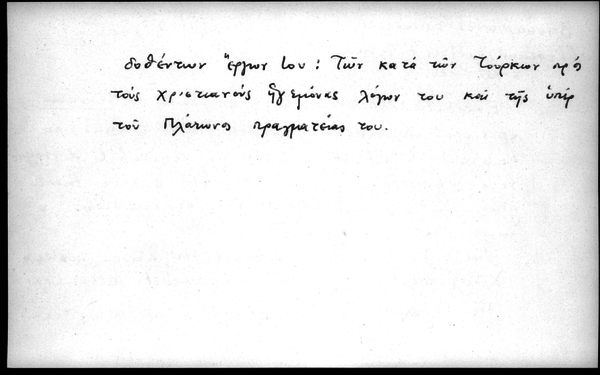 δοθέντων ἔργων του: Τῶν κατὰ τῶν Τούρκων πρὸς
τοὺς χριστιανοὺς ἡγεμόνας λόγων του καὶ τῆς ὑπὲρ
τοῦ Πλάτωνος πραγματείας του.